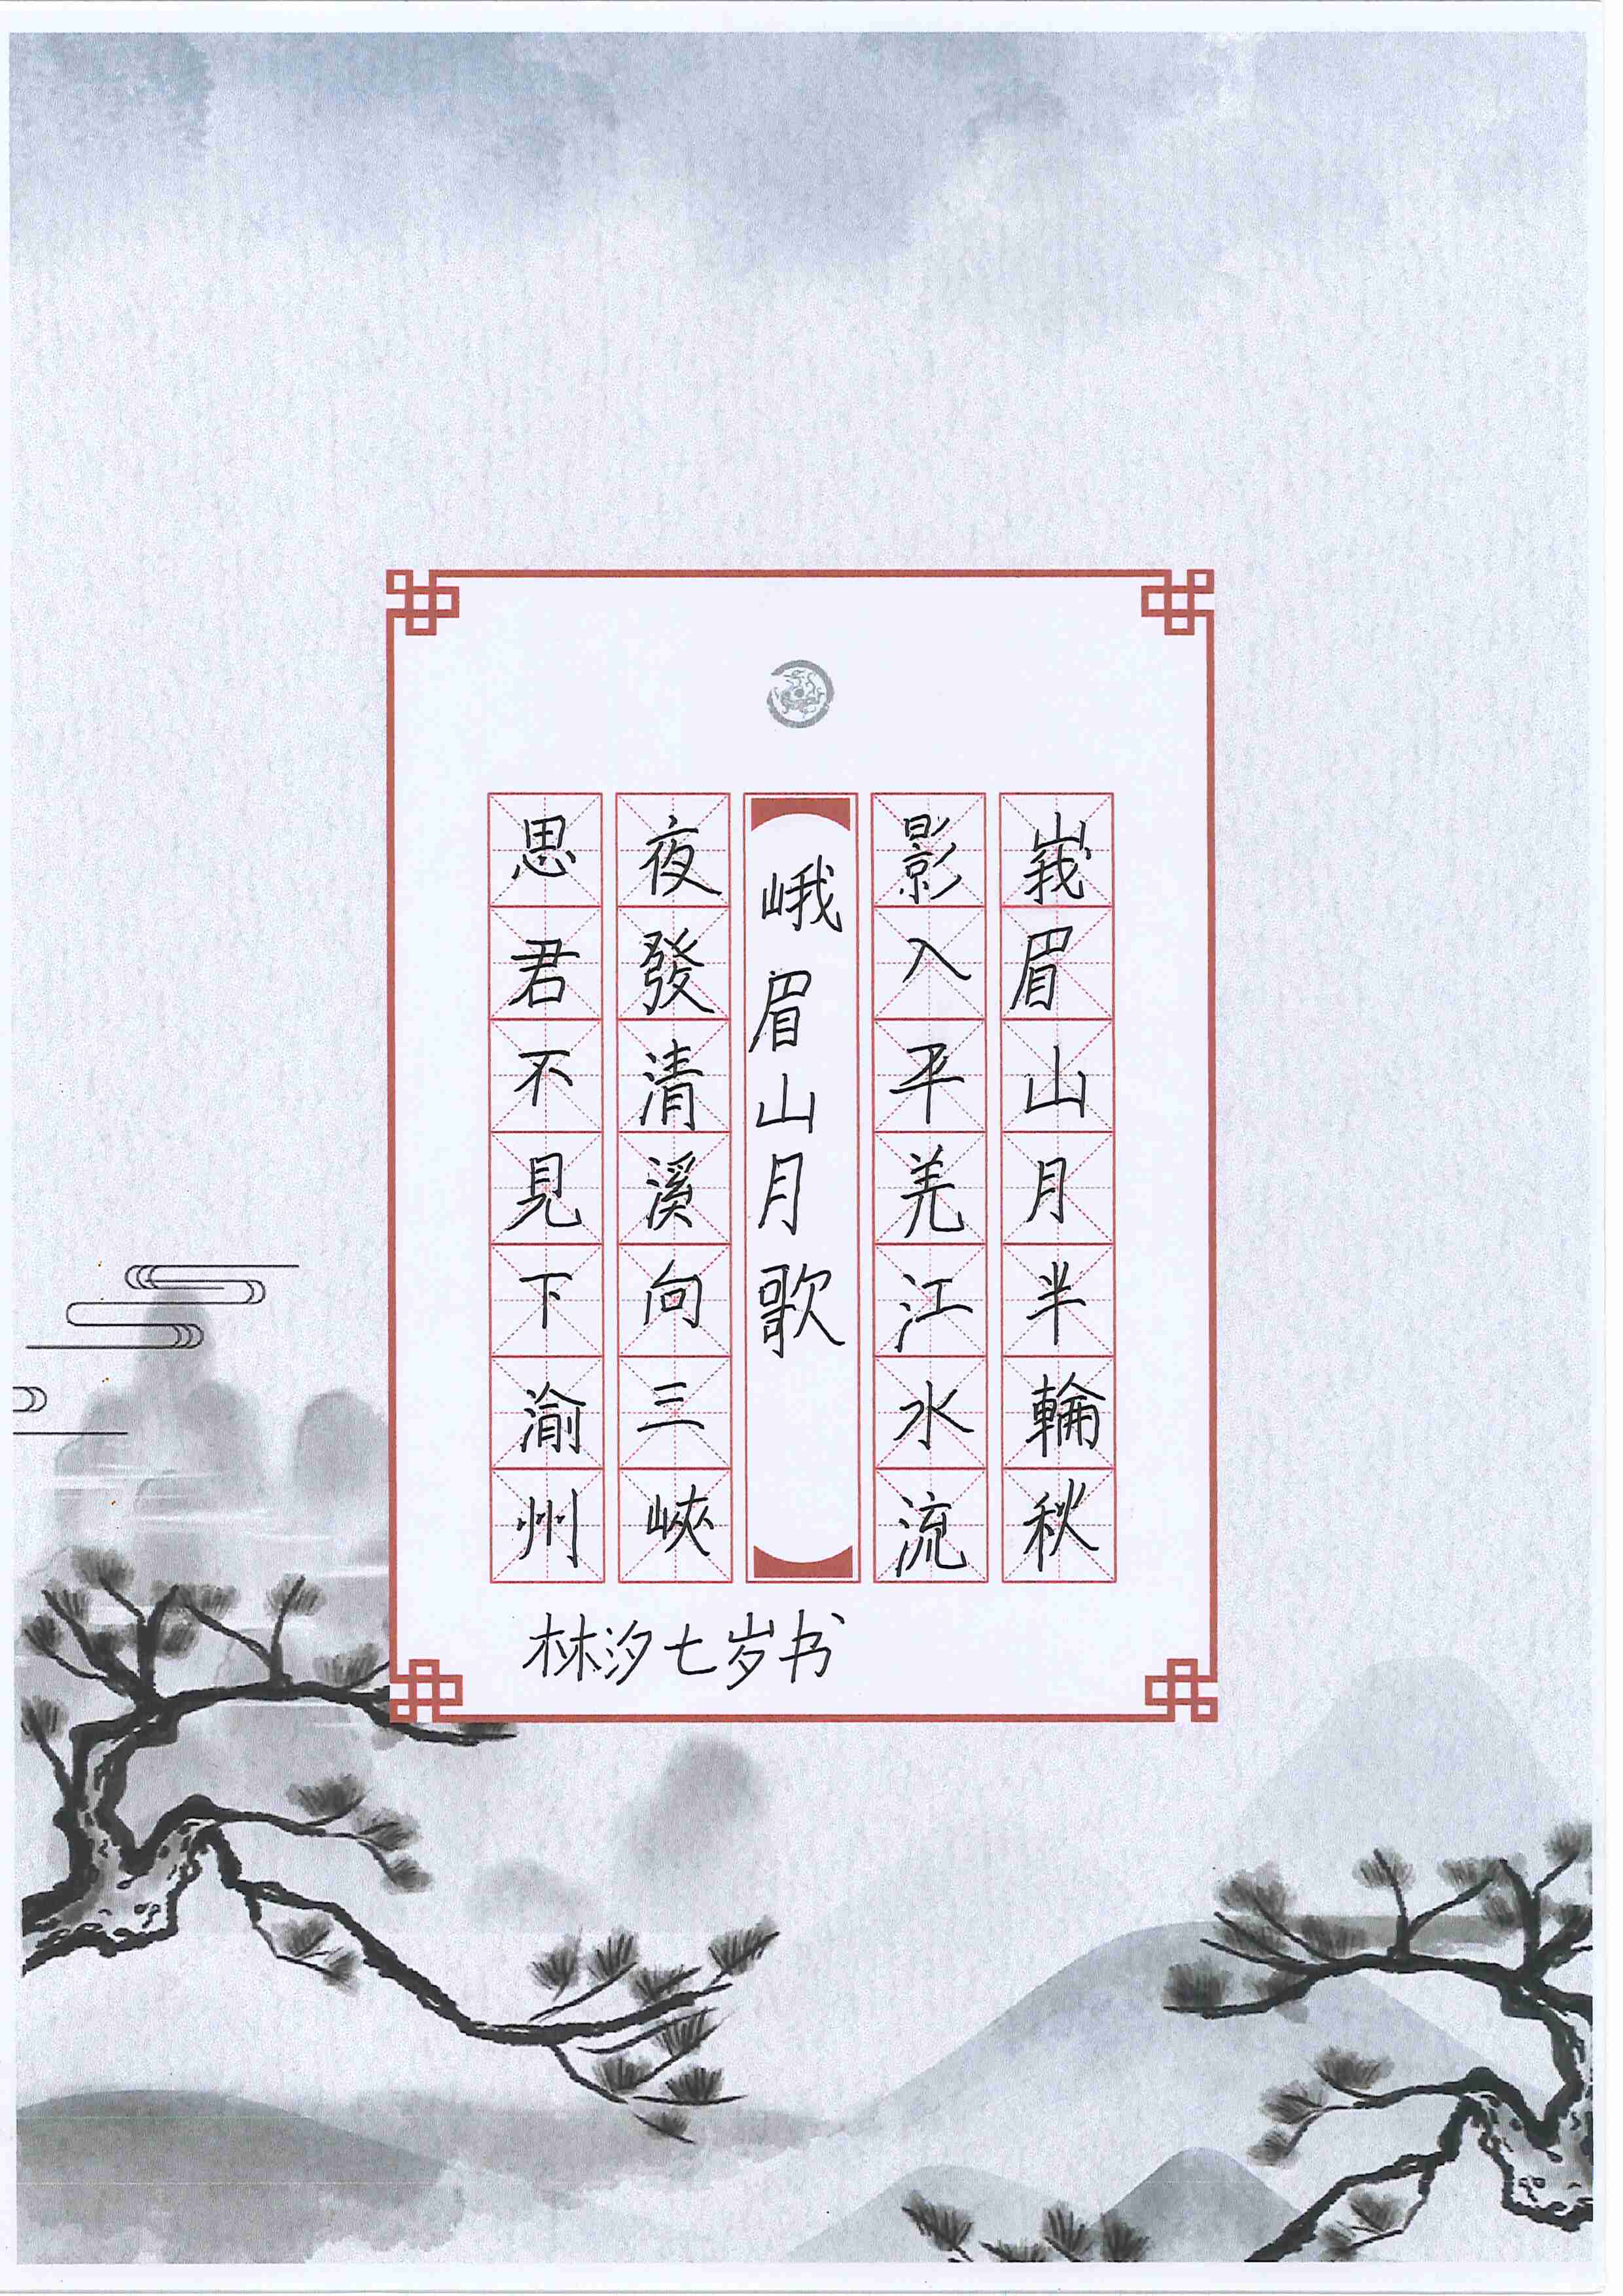 峩眉山月半輪秋
影入平羌江水流
峨眉山月歌
夜發清溪向三峽
思君不見下渝州
林汐七岁书